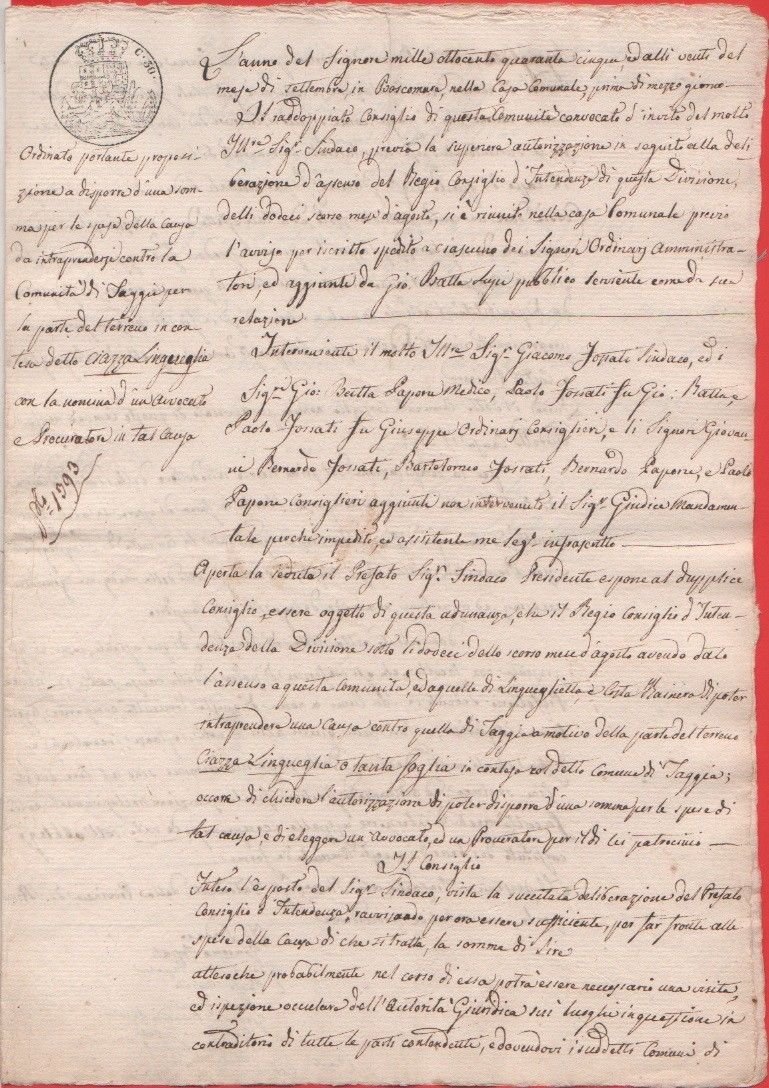 C. 50.
Ordinato portante proposi-
zione a disporre d'una som-
ma per le spese della Causa
da intraprendersi contro la
Comunità di Taggia per
la parte del terreno in con-
tesa detto Ciazza Lingueglia
con la nomina d'un avvocato
e Procuratore in tal Causa
1593
L'anno del Signore mille ottocento quaranta cinque, ed alli venti del
mese di settembre in Boscomare nella Casa Comunale, prima di mezzogiorno
Il raddoppiato Consiglio di questa Comunità convocato d'invito del molto
Ill.re Sig.r Sindaco, previa la superiore autorizzazione in seguito alla deli
berazione d'assenso del Regio Consiglio d'Intendenza di questa Divisione,
delli dodeci scorso mese d'agosto, si è riunito nella casa Comunale previo
l'avviso per iscritto spedito a ciascuno dei Signori Ordinarj Amministra-
tori, ed aggiunti da Gio. Batta Lupi pubblico serviente come da sua
relazione
Intervenienti il molto Ill.re Sig.r Giacomo Fossati Sindaco, ed i
Sig.ri Gio: Batta Papone Medico, Paolo Fossati fu Gio: Batta, e
Paolo Fossati fu Giuseppe Ordinarj Consiglieri, e li Signori Giovan-
ni Bernardo Fossati, Bartolomeo Fossati, Bernardo Papone, e Paolo
Papone Consiglieri aggiunti non intervenuto il Sig.r Giudice Mandamen-
tale perchè impedito, ed assistente me Seg.o infrascritto
Aperta la seduta il Prefato Sig.r Sindaco Presidente espone al dupplice
Consiglio, essere oggetto di questa adunanza, che il Regio Consiglio d'Inten-
denza della Divisione sotto li dodeci dello scorso mese d'agosto avendo dato
l'assenso a questa Comunità, ed a quelle di Lingueglietta, e Costa Rainera di poter
intraprendere una Causa contro quella di Taggia a motivo della parte del terreno
Ciazza Lingueglia o tanta foglia in contesa col detto Comune di Taggia;
occorre di chiedere l'autorizzazione di poter disporre d'una somma per le spese di
tal causa, e di eleggere un avvocato, ed un Procuratore per il di lei patrocinio
Il Consiglio
Inteso l'esposto del Sig.r Sindaco, vista la succitata deliberazione del Prefato
Consiglio d'Intendenza, ravvisando per ora essere sufficiente, per far fronte alle
spese della Causa di che si tratta, la somma di Lire
attesochè probabilmente nel corso di essa potrà essere necessario una visita,
ed ispezione occulare dell'Autorità Giuridica sui luoghi in questione in
contraditorio di tutte le parti contendenti, e dovendovi i suddetti Comuni di